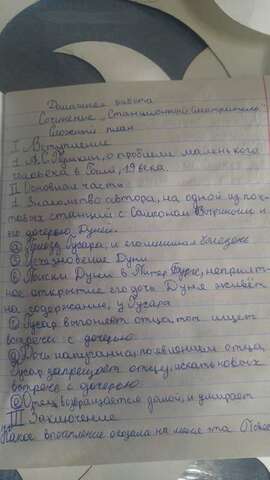 Домашняя работа
Сочинение "Станционный смотритель"
Сложный план
I Вступление
1 А.С. Пушкин, о проблеме маленького
человека в 19 века
II Основная часть
1 Знакомство автора, на одной из поч-
товых станций с Самсоном Выриным и
его дочерью Дуней.
а Приезд гусара, и его мнимая болезнь
б Исчезновение Дуни
в Поиски Дуни в Питер Бурге, неприят-
ное открытие его дочь Дуня живёт
на содержание, у Гусара
г Гусар выгоняет отца, тот ищет
встречи с дочерью
д Дочь напугана появлением отца,
Гусар запрещает отцу, искать новых
встреч с дочерью
е Отец возвращается домой, и умирает
III Заключение
Какое впечатление оказала на меня эта Повес